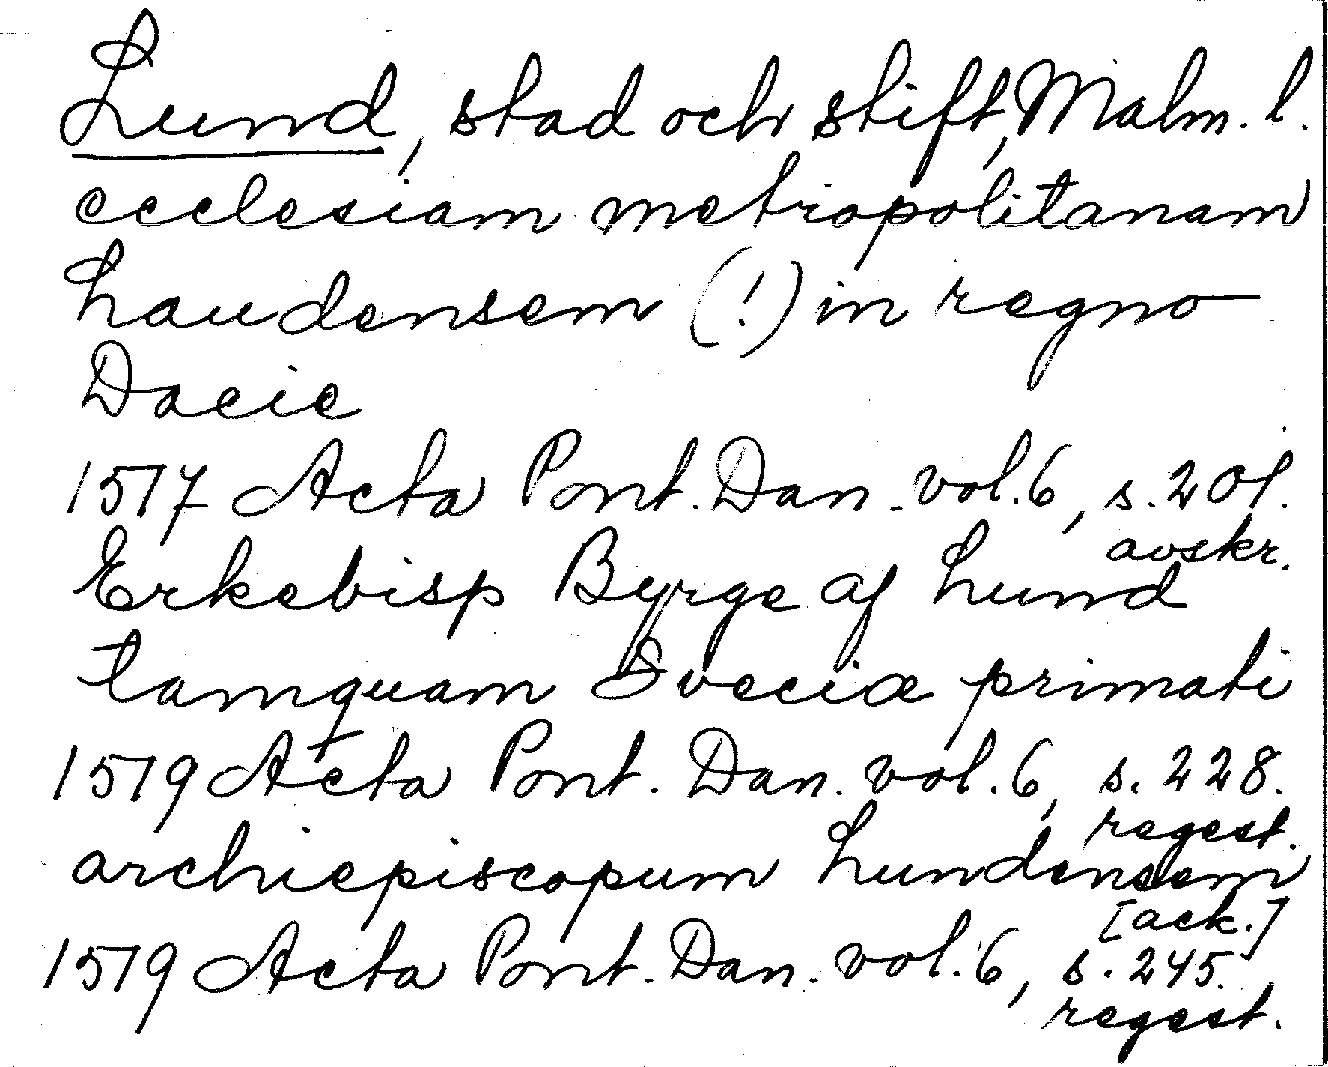 Lund, stad och stift, Malm. l.
ecclesiam metropolitanam
Laudensem (!) in regno
Dacie
1517 Acta Pont. Dan. vol. 6, s. 201.
avskr.
Erkebisp Byrge af Lund
tamquam Sveciæ primati
1519 Acta Pont. Dan. vol. 6, s. 228.
regest.
archiepiscopum Lundensem
[ack.]
1519 Acta Pont. Dan. vol. 6, s. 245.
regest.